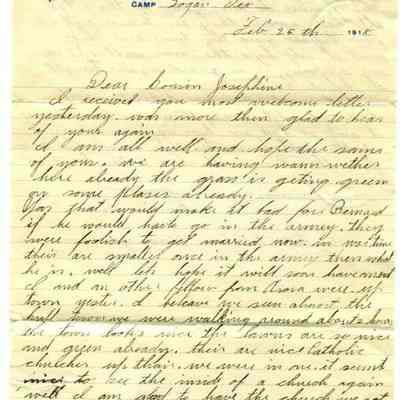 CAMP Logan Tex
Feb 25th 1918
Dear Cousin Josephine
I received you most welcome letter
yesterday. was more then glad to hear
of your again
I am all well and hope the same
of you. we are having warm wether
here already the grass is geting green
on some plases already.
that would make it bad for Bernard
if he would have to go in the armey. they
were foolish to get married now. in
their are smaller once in the armey then what
he is. well lets hope it will soon have
I and an other fellow from were up
town yester. I beleave we seen almost the
hull town we were walking around about 5 hours
the town looks nice the lawns are so nice
and green already. their are nice Catholic
churches up their. we were in one. it seemt
nice to see the inside of a church again
well I am glad to have the church we got